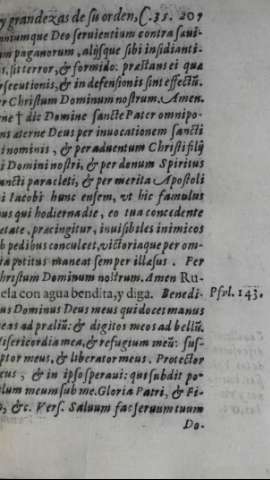 y grandezas de su orden, C. 35. 207
nonumque Deo seruientium contra saui-
um paganorum, alijsque sibi insidianti-
, sis terror, & formido: præstans ei qua
rsecutionis, & in defensionis sint effectũ.
er Christum Dominum nostrum. Amen.
ne † dic Domine sancte Pater omnipo-
ns æterne Deus per inuocationem sancti
i nominis, & per aduentum Christi filij
i Domini nostri, & per donum Spiritus
ncti paracleti, & per merita Apostoli
i Iacobi hunc ensem, vt hic famulus
us qui hodierna die, eo tua concedente
etate, præcingitur, inuisibiles inimicos
b pedibus conculcet, victoriaque per om-
ia potitus maneat semper illæsus. Per
hristum Dominum nostrum. Amen Ru-
ela con agua bendita, y diga. Benedi-
us Dominus Deus meus qui docet manus
eas ad præliũ. & digitos meos ad bellũ.
isericordia mea, & refugium meũ: sus-
ptor meus, & liberator meus. Protector
eus, & in ipso speraui: qui subdit po-
ulum meum sub me. Gloria Patri, & Fi-
o, &c. Vers. Saluum fac seruum tuum
Do-
Psal. 143.